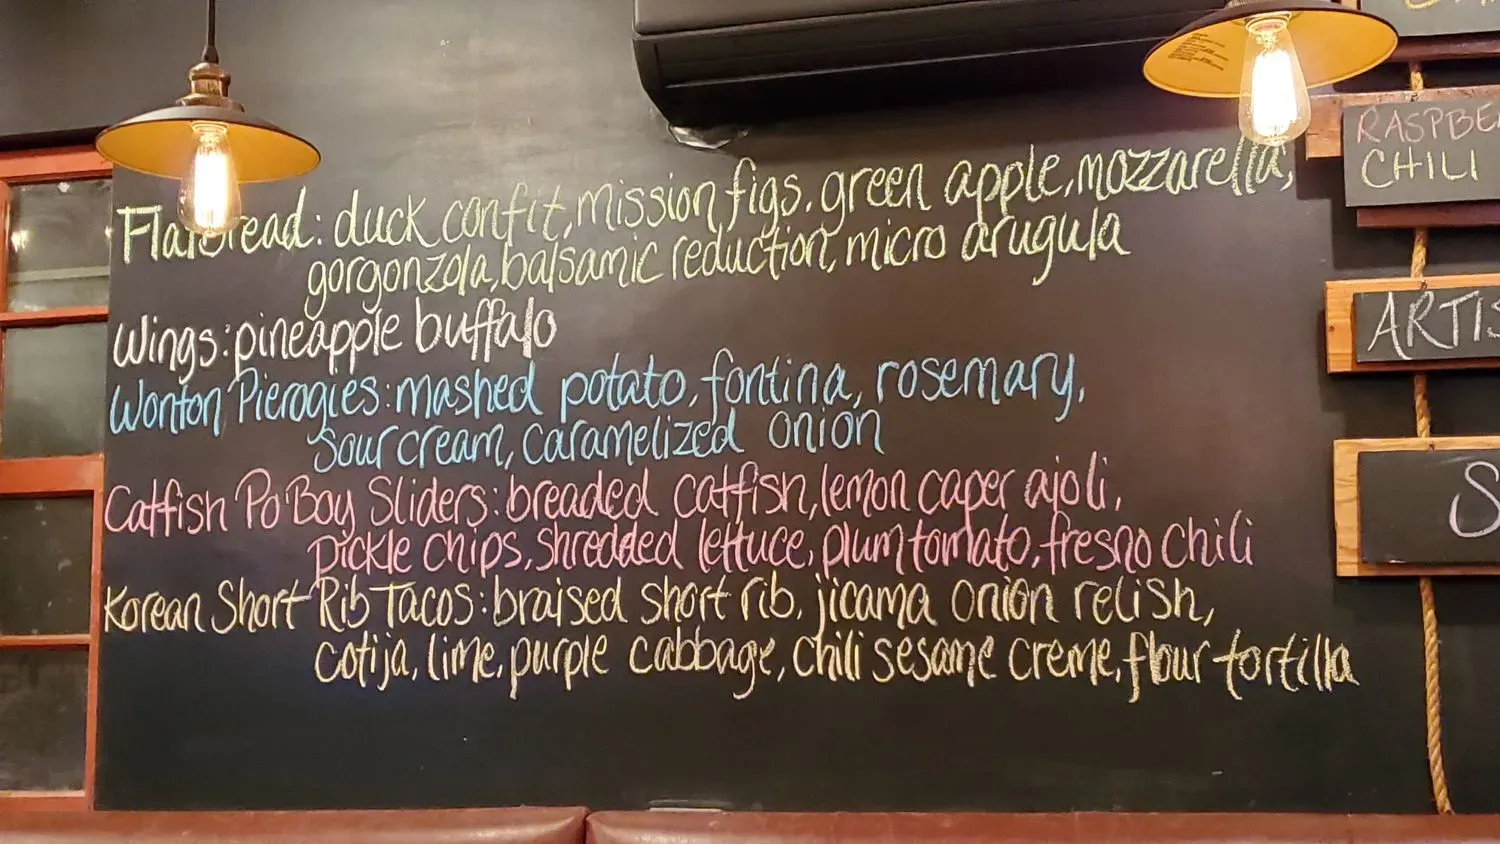 Flatbread: duck confit, mission figs, green apple, mozzarella,
gorgonzola, balsamic reduction, micro arugula
Wings: pineapple buffalo
Wonton Pierogies: mashed potato, fontina, rosemary,
sour cream, caramelized onion
Catfish Po Boy Sliders: breaded catfish, lemon caper aioli,
pickle chips, shredded lettuce, plum tomato, fresno chili
Korean Short Rib Tacos: braised short rib, jicama onion relish,
cotija, lime, purple cabbage, chili sesame creme, flour tortilla
RASPBE
CHILI
ARTIS
S